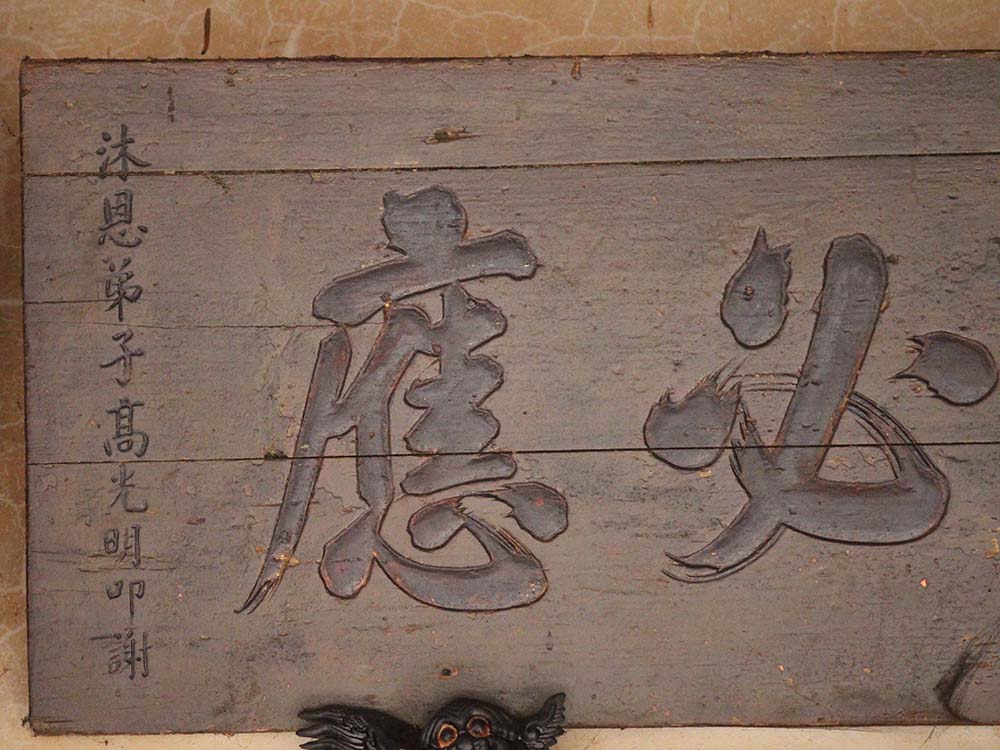 必應
沐恩弟子高光明叩謝